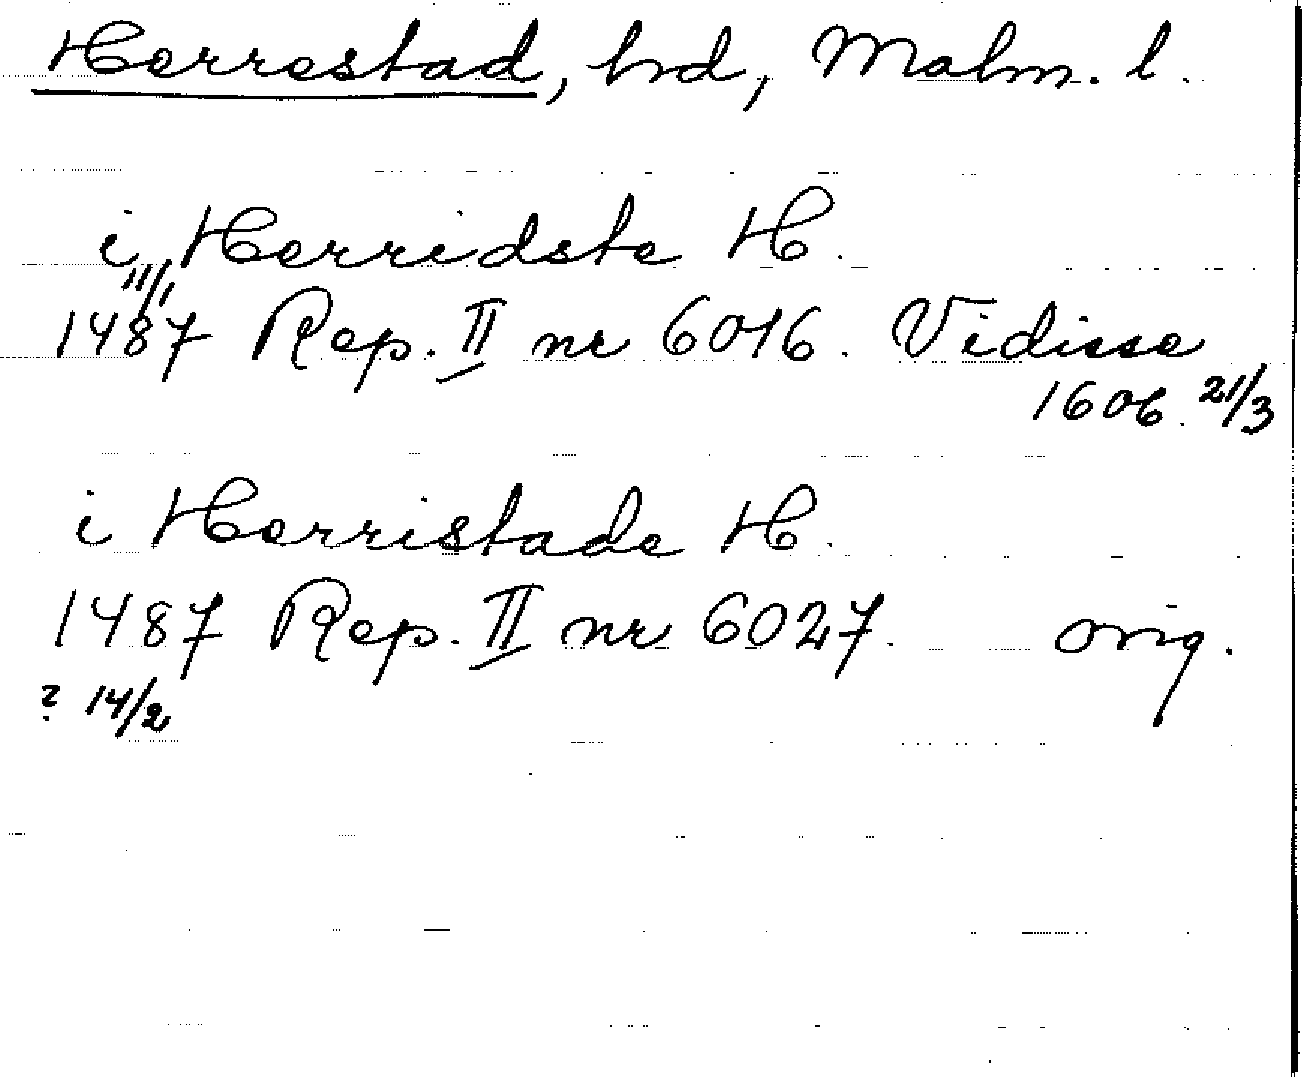 Herrestad, hd, Malm. l.
i Herridste H.
11/1
1487 Rep. II nr 6016. Vidisse
1606. 21/3
i Herristade H.
1487 Rep. II nr 6027. orig.
? 14/2